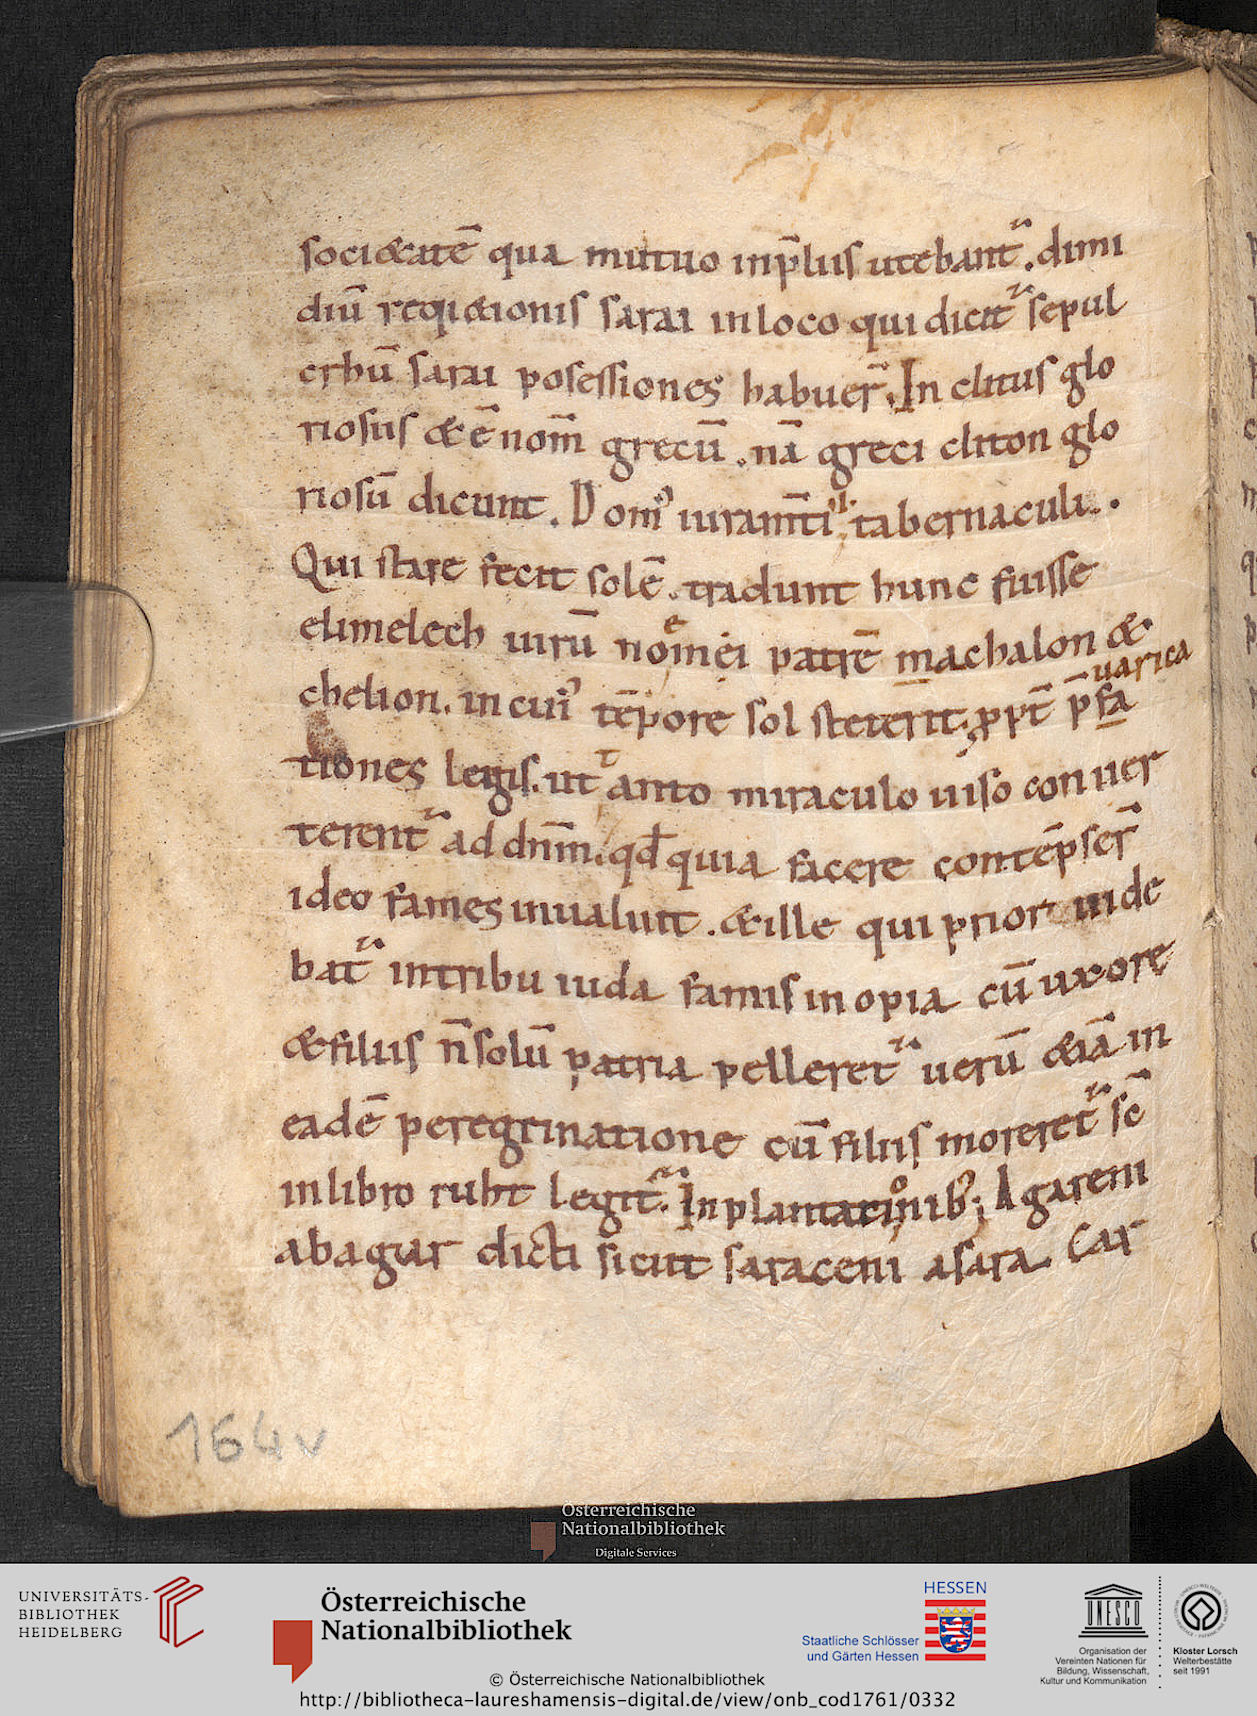 soci&atē qua mutuo inp̄liis utebant᷑. dimi
diū req&ionis sarai inloco qui dicit᷑ sepul
crhū sarai posessiones habuer̄. In clitus glo
riosus & ē nom̄ grecū. nā greci cliton glo
riosū dicunt. Domꝰ iuram̄ti ł tabernaculi.
Qui stare fecit solē. tradunt hunc fuisse
elimelech uirū noemei patrē machalon &
uarica
chelion. in cuiꝰ tēpore sol steterit. ꝓpt̄ p̄fa
tiones legis. ut tanto miraculo uiso conuer
terent᷑ ad dn̄m. qđ quia facere contēpser̄
ideo fames inualuit. & ille qui prior uide
bat᷑ intribu iuda famis inopia cū uxore
& filiis n̄ solū patria pelleret᷑ uerū &iā in
eadē peregrinatione cū filiis moreret᷑ sc̄
inlibro ruht legit᷑. In plantationibꝰ; Agareni
abagar dicti sicut saraceni asara. Car
164v
Österreichische
Nationalbibliothek
Digitale Services
UNIVERSITÄTS-
BIBLIOTHEK
HEIDELBERG
Österreichische
Nationalbibliothek
HESSEN
Staatliche Schlösser
und Gärten Hessen
UNESCO
Organisation der
Vereinten Nationen für
Bildung, Wissenschaft,
Kultur und Kommunikation
Kloster Lorsch
Welterbestätte
seit 1991
© Österreichische Nationalbibliothek
http://bibliotheca-laureshamensis-digital.de/view/onb_cod1761/0332